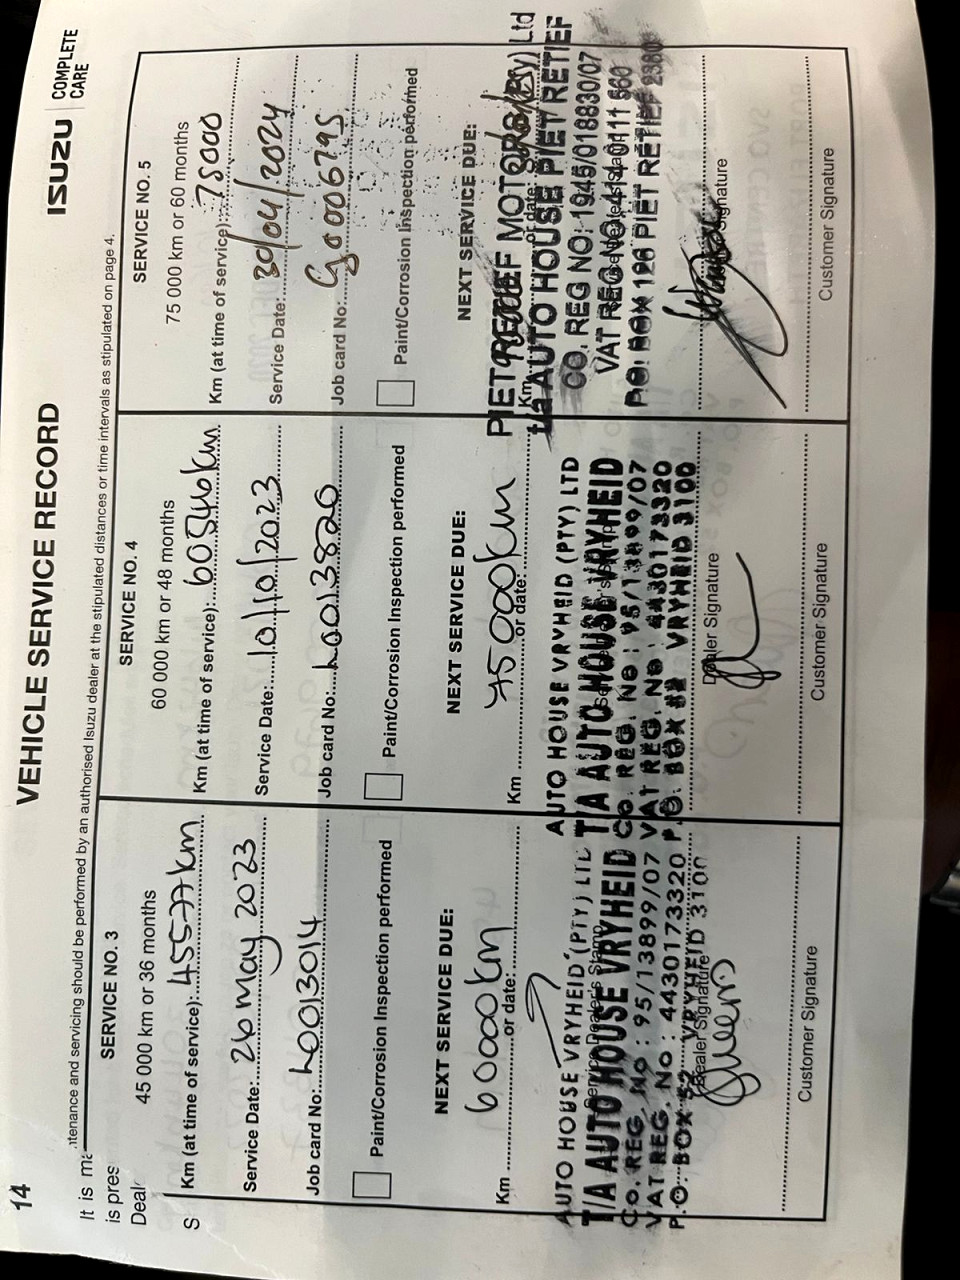 14
VEHICLE SERVICE RECORD
ISUZU | COMPLETE CARE
It is
ntenance and servicing should be performed by an authorised Isuzu dealer at the stipulated distances or time intervals as stipulated on page 4.
is pres
Deal
S
SERVICE NO. 3
45 000 km or 36 months
Km (at time of service): 45577km
Service Date: 26 may 2023
Job card No: h0013014
Paint/Corrosion Inspection performed
NEXT SERVICE DUE:
60000km
Km or date:
AUTO HOUSE VRYHEID (PTY) LTD
T/A AUTO HOUSE VRYHEID
Co. REG. No : 95/13899/07
VAT REG. No : 4430173320
P.O. BOX 52 VRYHEID 3100
Dealer Signature
Customer Signature
SERVICE NO. 4
60 000 km or 48 months
Km (at time of service): 60546km
Service Date: 10/10/2023
Job card No: h0013820
Paint/Corrosion Inspection performed
NEXT SERVICE DUE:
75000km
Km or date:
AUTO HOUSE VRYHEID (PTY) LTD
T/A AUTO HOUSE VRYHEID
Co. REG. No : 95/13899/07
VAT REG. No : 4430173320
P.O. BOX 52 VRYHEID 3100
Dealer Signature
Customer Signature
SERVICE NO. 5
75 000 km or 60 months
Km (at time of service): 75000
Service Date: 30/04/2024
Job card No: G0006795
Paint/Corrosion Inspection performed
NEXT SERVICE DUE:
Km or date:
PIET RETIEF MOTORS (Pty) Ltd
t/a AUTO HOUSE PIET RETIEF
CO. REG NO: 1945/018830/07
VAT REG NO.
P.O. BOX 126 PIET RETIEF 2380
Signature
Customer Signature